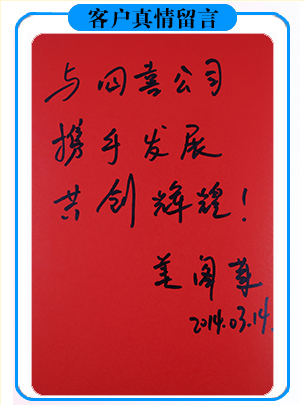 客户真情留言
与四喜公司
携手发展
共创辉煌!
美阁
2014.03.14.